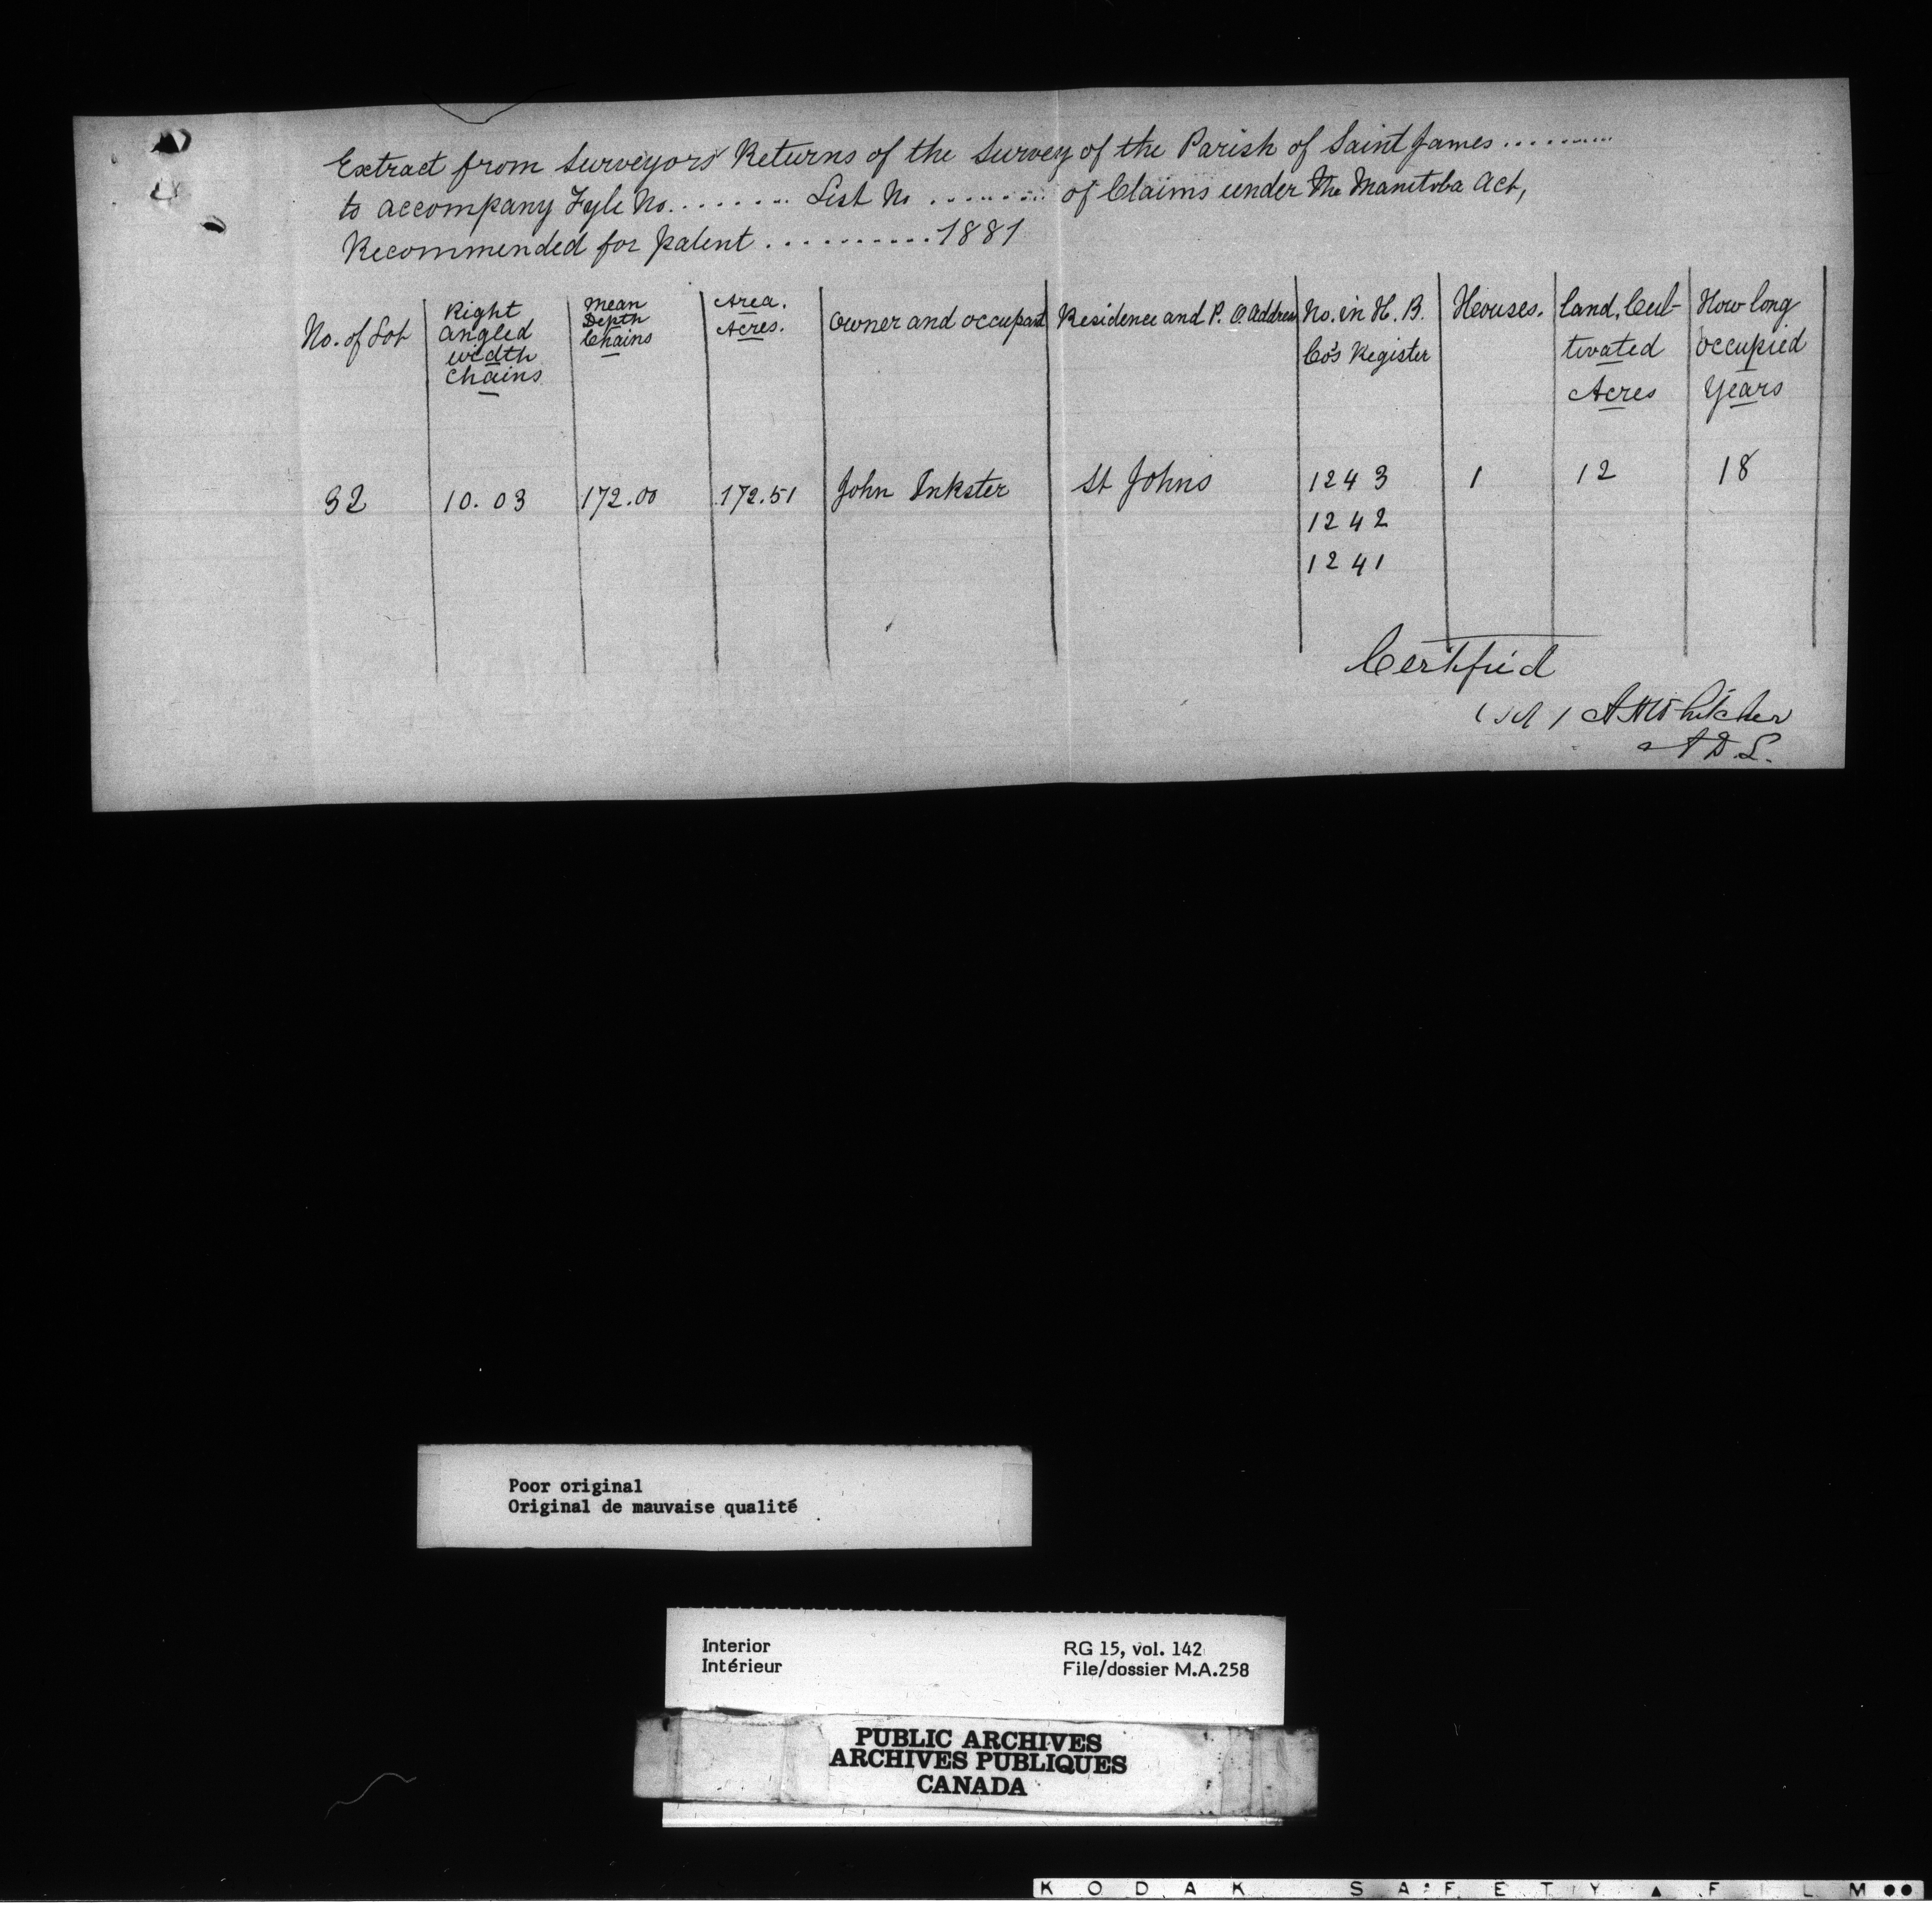 Extract from Surveyors Returns of the Survey of the Parish of Saint James ..........
to accompany Fyle No. ........ List No ........ of Claims under The Manitoba Act,
Recommended for patent .......... 1881
No. of Lot | Right angled width chains | Mean Depth Chains | Area. Acres. | Owner and occupant | Residence and P. O. Address | No. in H. B. Co's Register | Houses. | Land Cul-tivated Acres | How long occupied Years
32 | 10.03 | 172.00 | 172.51 | John Inkster | St Johns | 1243 | 1 | 12 | 18
1242
1241
Certified
A Whitcher
Poor original
Original de mauvaise qualité
Interior RG 15, vol. 142
Intérieur File/dossier M.A.258
PUBLIC ARCHIVES
ARCHIVES PUBLIQUES
CANADA
KODAK SAFETY ▲ FILM ●●